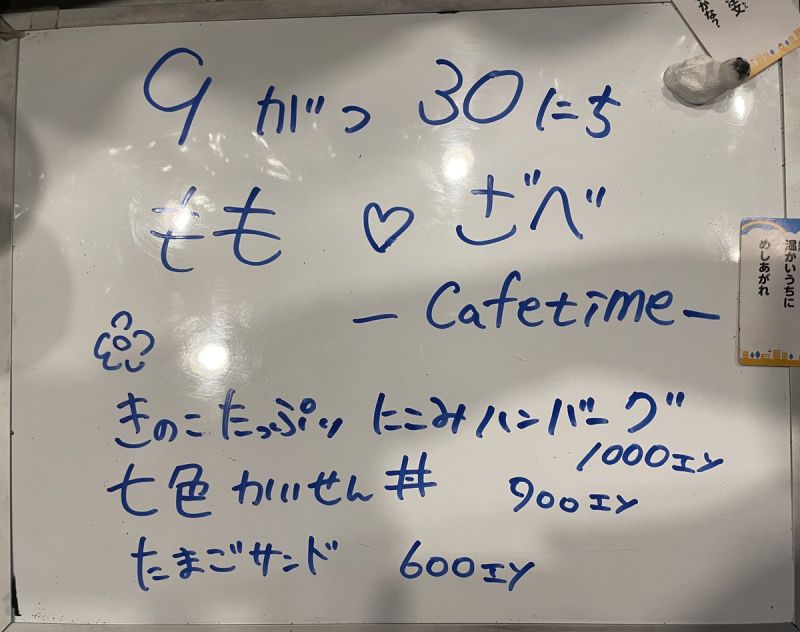 9がつ30にち
もも♡ごべ
－Cafetime－
きのこたっぷり にこみハンバーグ
1000エン
七色かいせん丼 900エン
たまごサンド 600エン
温かいうちに
めしあがれ